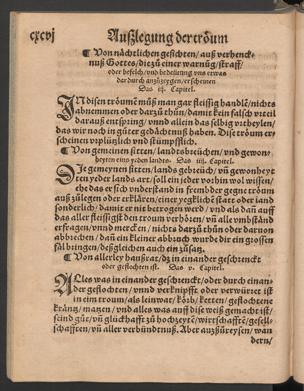 cxcvj Außlegung der tröum
¶ Von nächtlichen gesichten/auß verhenck-
nuß Gottes/die zů einer warnůg/straff/
oder befelch/vnd bedeütung vns etwas
dardurch anzůzeygen/erscheinen
Das iij. Capitel.
IN disen tröumen můß man gar fleissig handlē/nichts
abnemmen oder darzů thůn/damit kein falsch vrteil
darauß entspring/vnnd allein das selbig vßtheylen/
das wir noch in gůter gedächtnuß haben. Dise tröum er-
scheinen vrplützlich vnd stümpfflich.
¶ Von gemeinen sitten/landtsbreüchen/vnd gewon-
heyten eins yeden lands. Das iiij. Capitel.
DJe gemeynen sitten/lands gebreüch/vn̄ gewonheyt
ten yeder landa art/sol ein yeder vorhin wol wissen/
ehe das er sich vnderstand in frembder gegne tröum
auß zůlegen oder erklären/einer yegklichē statt oder land
sonderlich/damit er nit betrogen werd/vnd als dañ auff
das aller fleissigst den troum verhören/vn̄ alle vmbständ
erfragen/vnnd mercken/nichts darzů thůn oder daruon
abbrechen/dañ ein kleiner abbruch wurde dir ein grossen
fäl bringen/deßgleichen auch ein zůsatz.
¶ Von allerley haußrat/dz in einander geschrenckt
oder geflochten ist. Das v. Capitel.
ALles was in einander geschrenckt/oder durch einan-
der geflochten/vnnd verknipfft oder verwürret ist
in eim troum/als leinwat/körb/ketten/geflochtene
kräntz/matzen/vnd alles was auff dise weiß gemacht ist/
seind gůt/vn̄ glückhafft zů hochzeytē/wirtschafftē/gesell-
schafften/vn̄ aller verbündtnuß. Aber außzůreysen/wan
dern/